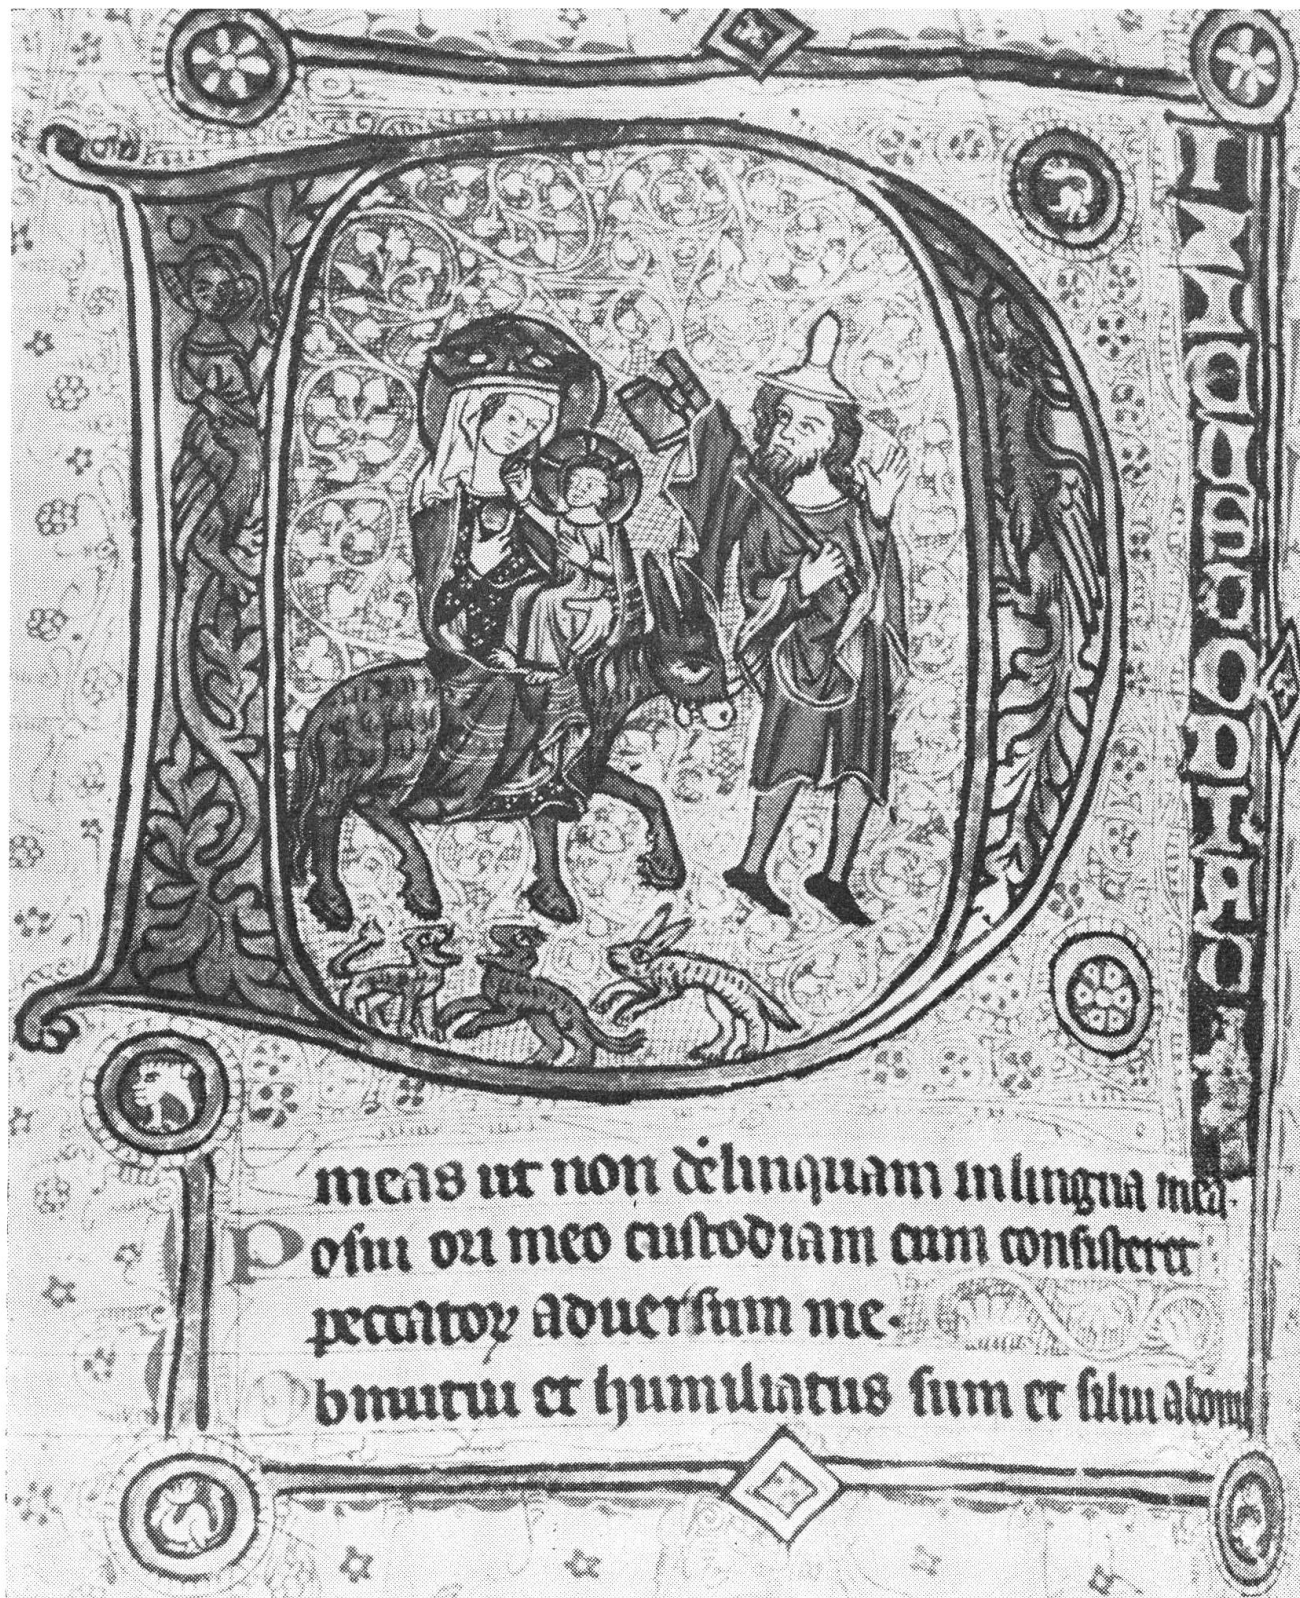 D
meas ut non delinquam in lingua mea.
Posui ori meo custodiam cum consisteret
peccator aduersum me.
Obmutui et humiliatus sum et silui a boni